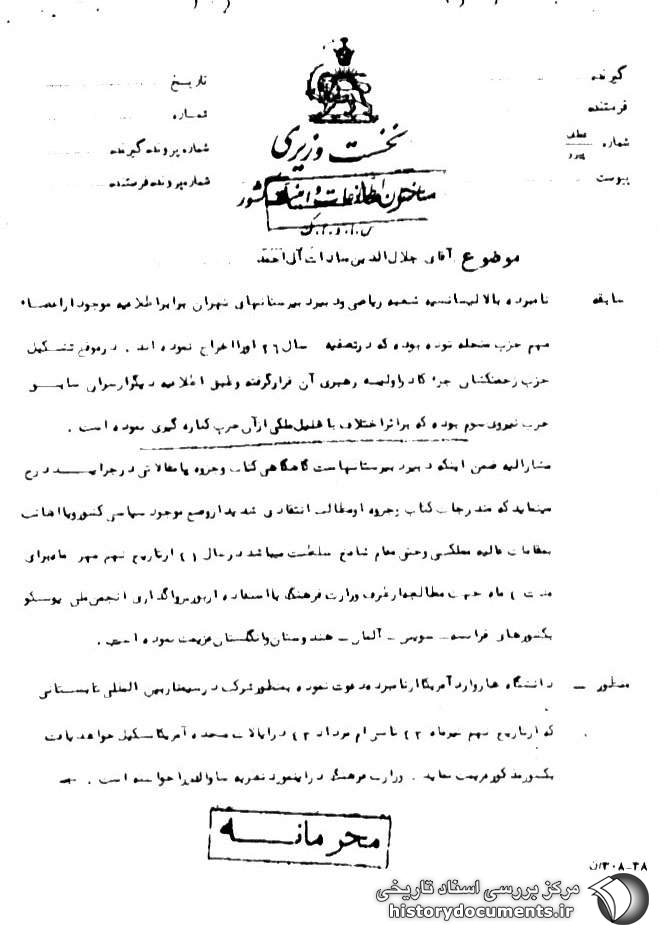 گیرنده
تاریخ
فرستنده
شماره
شماره عطف پیرو
شماره پرونده گیرنده
پیوست
شماره پرونده فرستنده
نخست وزیری
سازمان اطلاعات و امنیت کشور
س.ا.و.ا.ک
موضوع آقای جلال الدین سادات آل احمد
سابقه نامبرده بالا لیسانسیه شعبه ریاضی و دبیر دبیرستانهای تهران برابر اطلاعیه موجود از اعضاء
مهم حزب منحله توده بوده که در تصفیه سال ۲۶ او را اخراج نموده اند . در موقع تشکیل
حزب زحمتکشان جزء کادر اولیه رهبری آن قرار گرفته و طبق اطلاعیه دیگر از سران سابق
حزب نیروی سوم بوده که بر اثر اختلاف با خلیل ملکی از آن حزب کناره گیری نموده است .
مشارالیه ضمن اینکه دبیر دبیرستانهاست گاهگاهی کتاب و جزوه یا مقالاتی در جراید درج
مینماید که مندرجات کتاب و جزوه او مطالب انتقادی شدید از وضع موجود سیاسی کشور و یا اهانت
بمقامات عالیه مملکتی و حتی مقام شامخ سلطنت میباشد در سال ۴۱ از تاریخ نهم مهر ماه برای
مدت ماه جهت مطالعه از طرف وزارت فرهنگ با استفاده از بورس واگذاری انجمن ملی یونسکو
بکشورهای فرانسه - سویس - آلمان - هندوستان و انگلستان عزیمت نموده است .
منظور - دانشگاه هاروارد آمریکا از نامبرده دعوت نموده بمنظور شرکت در سمینار بین المللی تابستانی
که از تاریخ نهم تیرماه ۴۳ تا سی ام مرداد ۴۳ در ایالات متحده آمریکا تشکیل خواهد یافت
بکشور مذکور عزیمت نماید . وزارت فرهنگ در اینمورد نظریه ساواک را خواسته است .
محرمانه
۲۸-۳۰۸/ن
مرکز بررسی اسناد تاریخی
historydocuments.ir